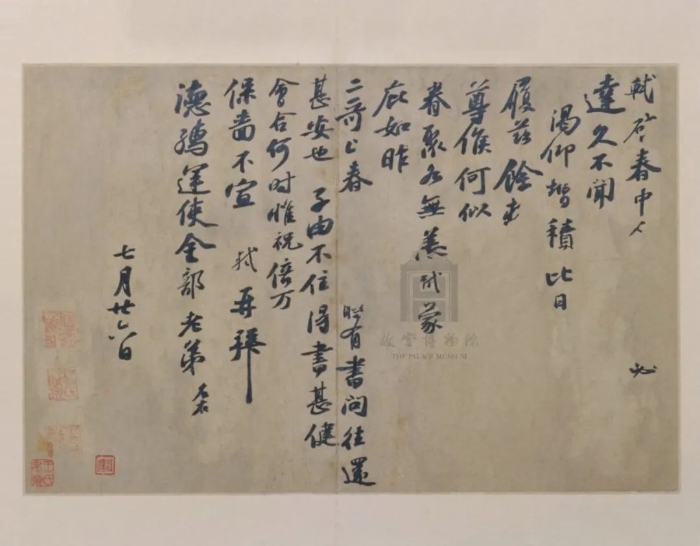 軾啓春中人 必
達久不聞
渴仰增積比日
履茲餘
尊候何似
眷聚各無恙軾蒙
庇如昨
二哥上春 時有書問往還
甚安也 子由不住得書甚健
會合何時惟祝倍万
保嗇不宣 軾再拜
德孺運使金部老弟
七月廿六日
故宫博物院
THE PALACE MUSEUM